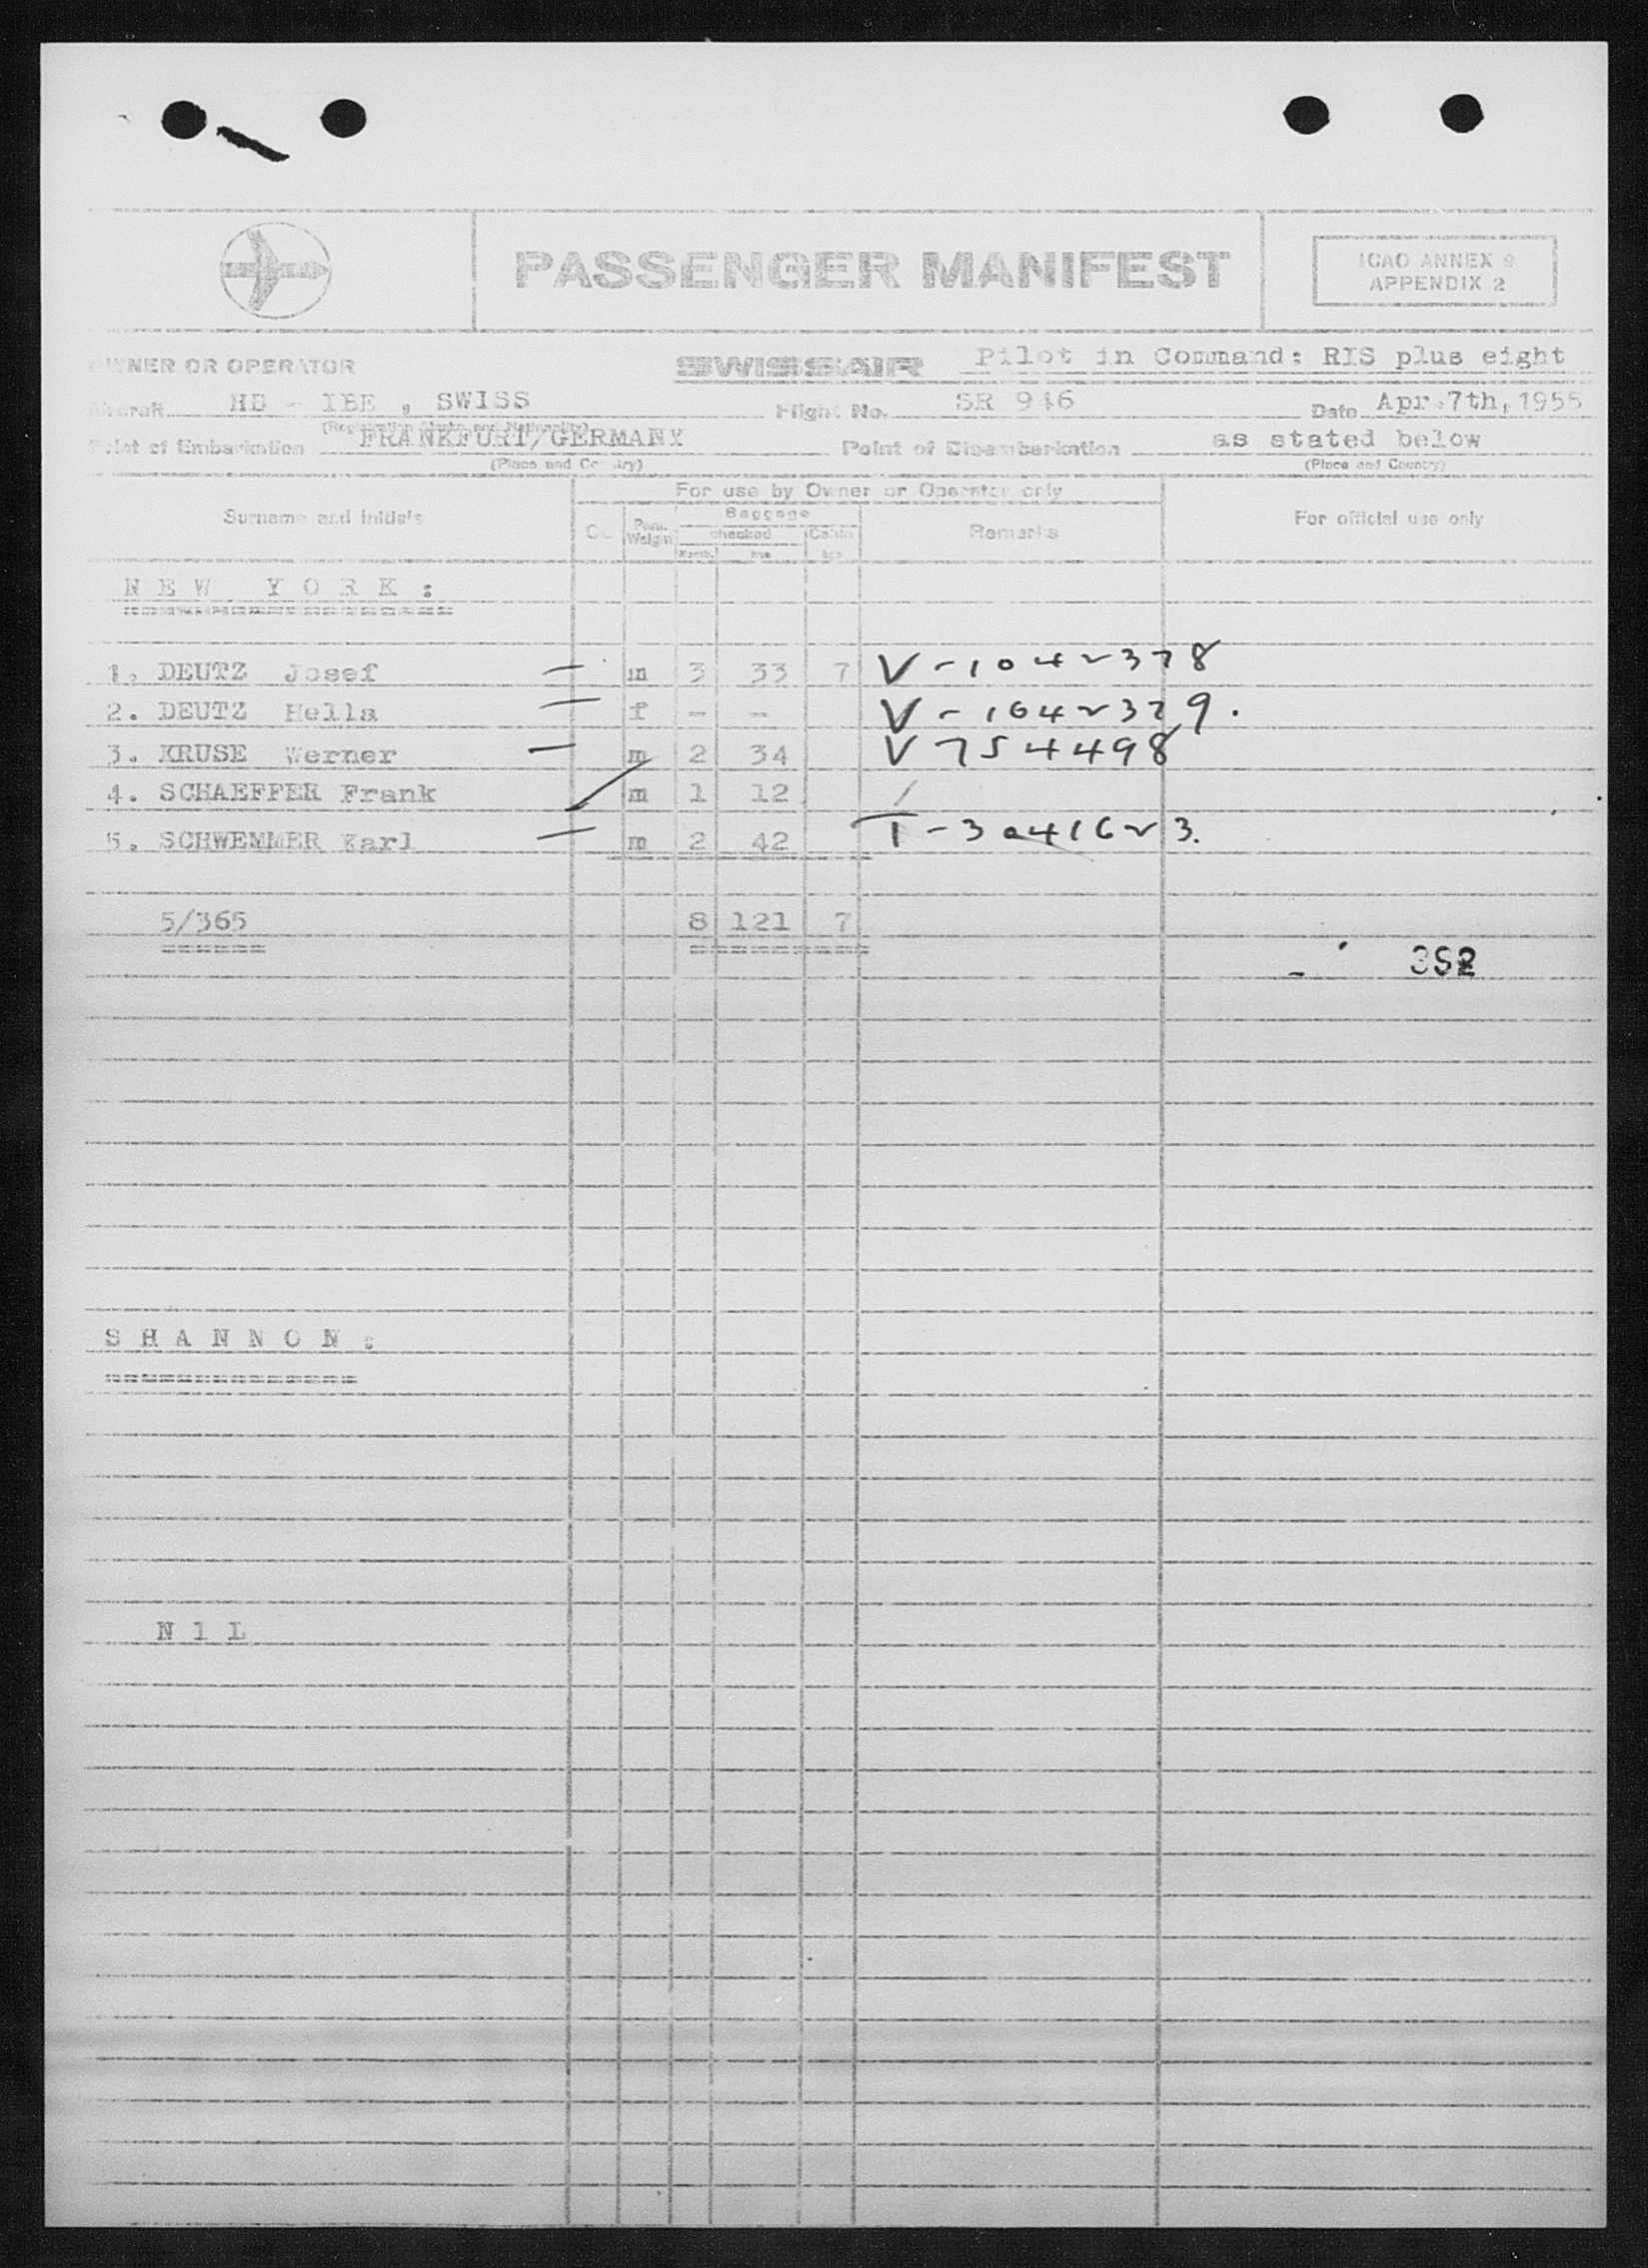 PASSENGER MANIFEST
ICAO ANNEX 9
APPENDIX 2
OWNER OR OPERATOR SWISSAIR Pilot in Command: RIS plus eight
Aircraft HB - IBE , SWISS Flight No. SR 946 Date Apr.7th,1955
(Registration Marks and Nationality)
Point of Embarkation FRANKFURT/GERMANY Point of Disembarkation as stated below
(Place and Country) (Place and Country)
For use by Owner or Operator only
Surname and initials Baggage Remarks For official use only
Weight checked Cabin
N E W Y O R K :
1. DEUTZ Josef m 3 33 7 V-1042378
2. DEUTZ Hella f - - V-1042379.
3. KRUSE Werner m 2 34 V754498
4. SCHAEFFER Frank m 1 12 /
5. SCHWEMMER Karl m 2 42 T-3041623.
5/365 8 121 7
352
S H A N N O N :
N i l